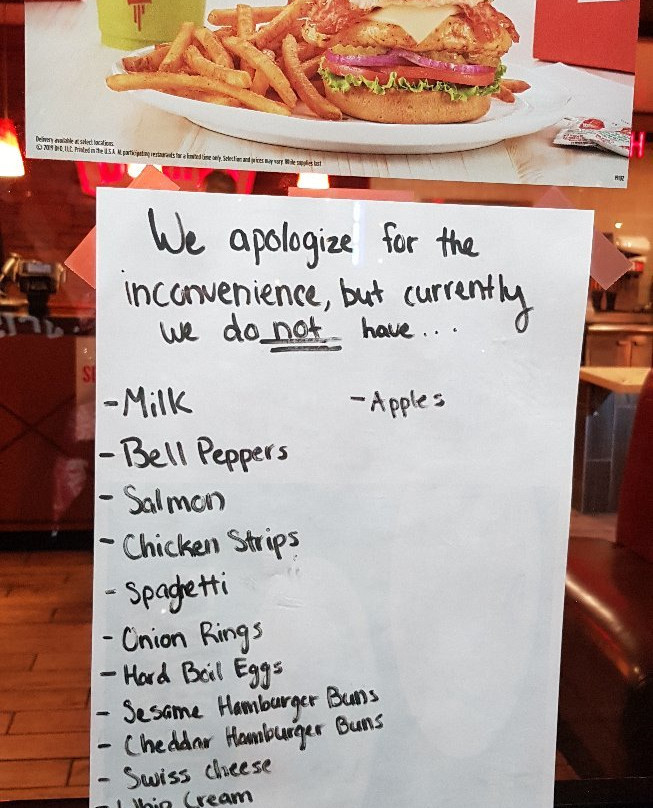 Delivery available at select locations.
© 2019 DFO, LLC. Printed in the U.S.A. At participating restaurants for a limited time only. Selection and prices may vary. While supplies last.
We apologize for the
inconvenience, but currently
we do not have...
- Milk
- Bell Peppers
- Salmon
- Chicken Strips
- Spaghetti
- Onion Rings
- Hard Boil Eggs
- Sesame Hamburger Buns
- Cheddar Hamburger Buns
- Swiss cheese
- Whip Cream
- Apples